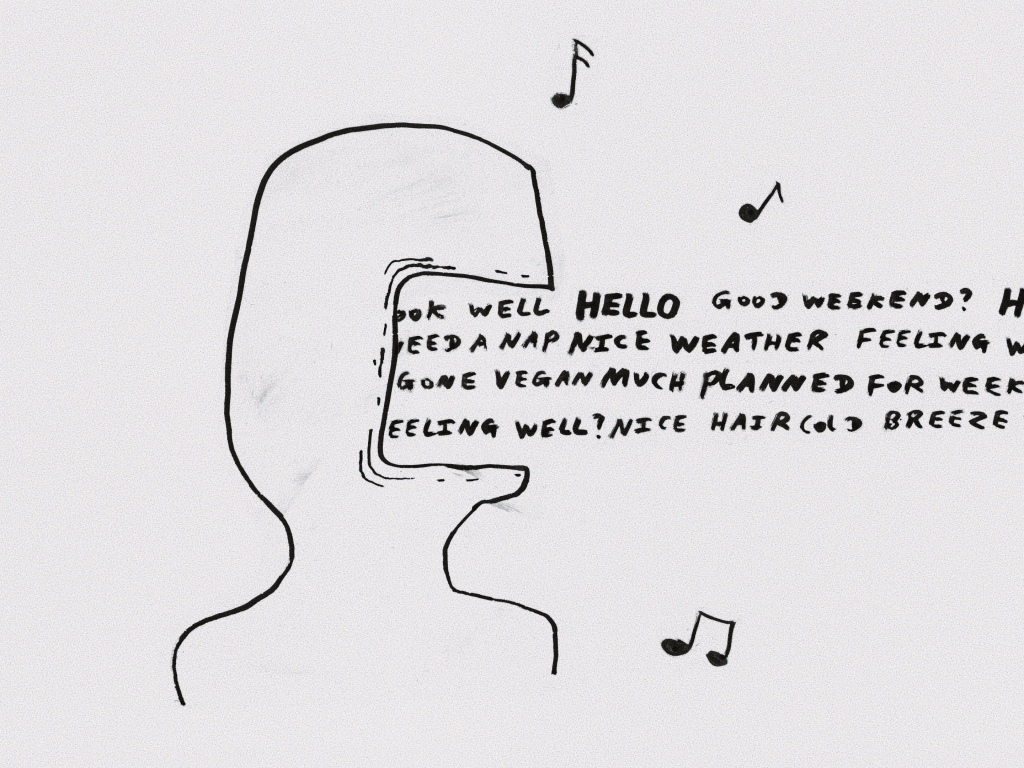 OOK WELL HELLO GOOD WEEKEND? H
EED A NAP NICE WEATHER FEELING W
GONE VEGAN MUCH PLANNED FOR WEEK
EELING WELL? NICE HAIR COLD BREEZE